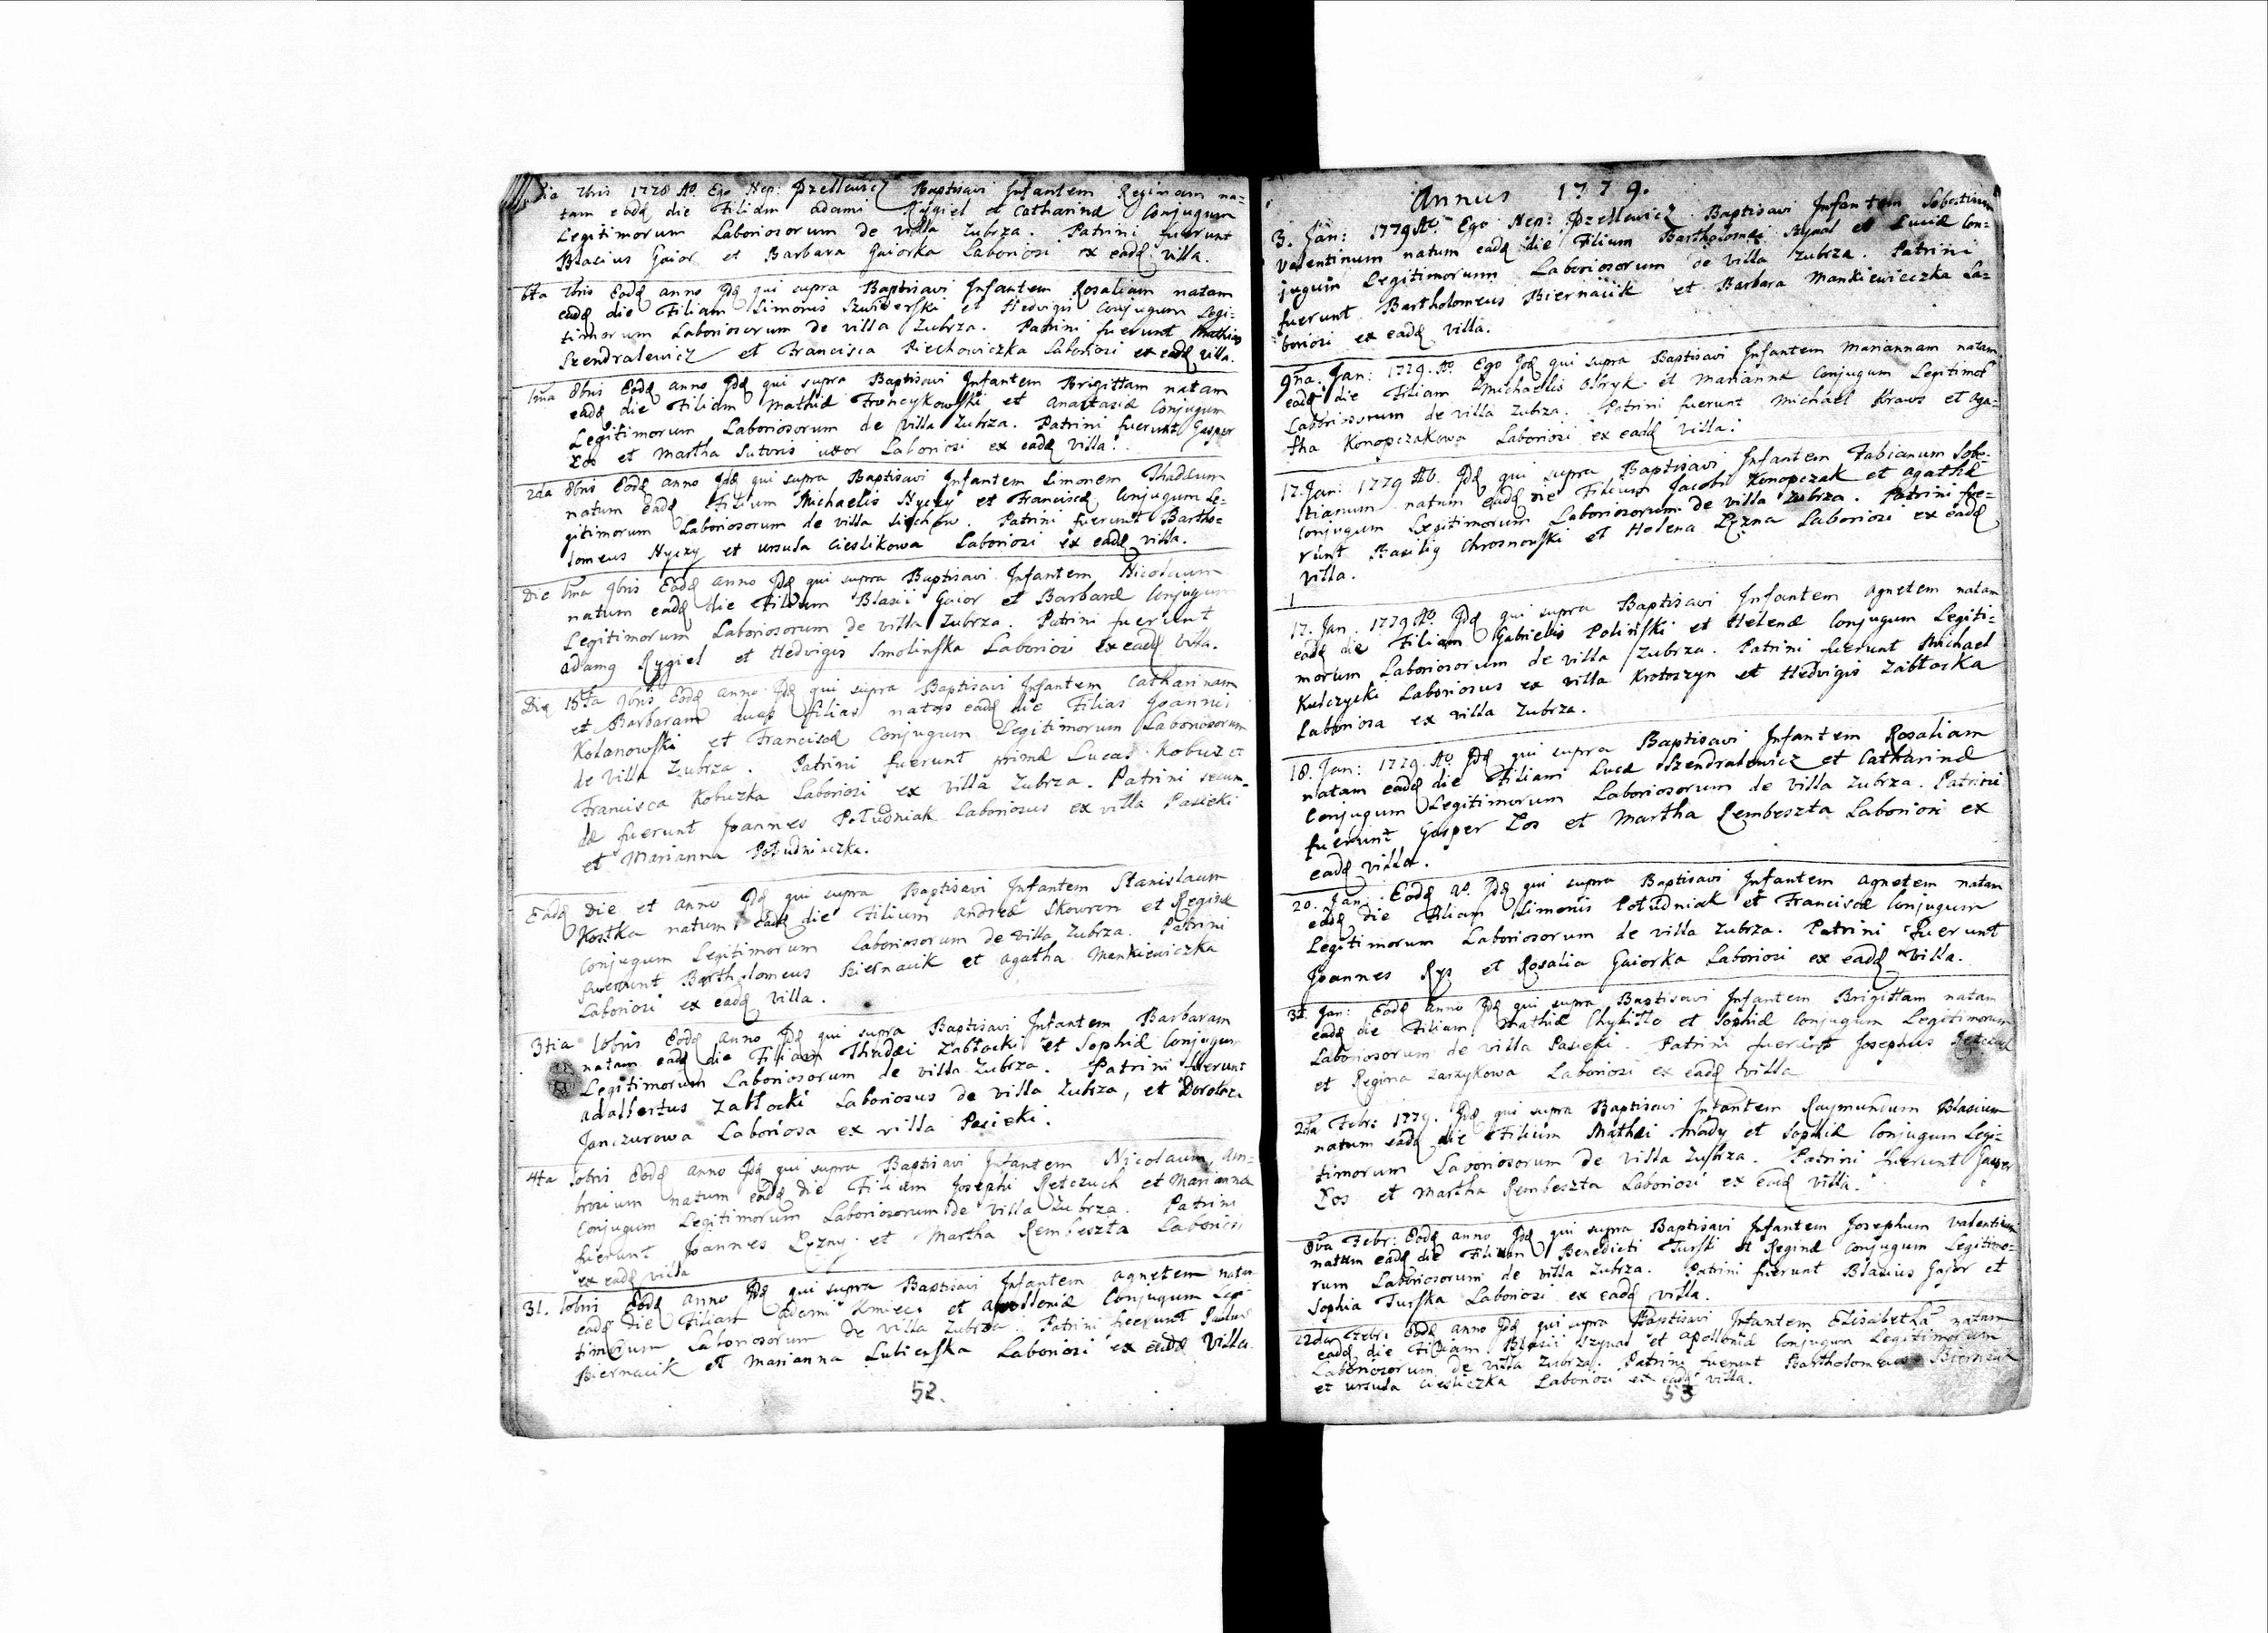 7bris 1778 Ao. Ego Nep: Baptisavi Infantem Reginam na-
tam eadē die Filiam adami Rygiel et Catharinæ Conjugum
Legitimorum Laboriosorum de villa Zubrza. Patrini fuerunt
Blasius Gaior et Barbara Gaiorka Laboriosi ex eadē villa.
6ta 7bris Eodē anno Idē qui supra Baptisavi Infantem Rosaliam natam
eadē die Filiam Simonis et Hedvigis Conjugum Legi-
timorum Laboriosorum de villa Zubrza. Patrini fuerunt Mathias
Szendralewicz et Francisca Piechowiczka Laboriosi ex eadē villa.
1ma 8bris Eodē anno Idē qui supra Baptisavi Infantem Brigittam natam
eadē die Filiam Mathiæ et Anastasiæ Conjugum
Legitimorum Laboriosorum de villa Zubrza. Patrini fuerunt Gasper
Łos et Martha Sutoris uxor Laboriosi ex eadē villa.
2da 8bris Eodē anno Idē qui supra Baptisavi Infantem Simonem Thaddæum
natum eadē Filium Michaelis Hyczy et Franciscæ Conjugum Le-
gitimorum Laboriosorum de villa Sichów. Patrini fuerunt Bartho-
lomeus Hyczy et Ursula Cieslikowa Laboriosi ex eadē villa.
Die 1ma 9bris Eodē anno Idē qui supra Baptisavi Infantem Nicolaum
natum eadē die Filium Blasii Gaior et Barbaræ Conjugum
Legitimorum Laboriosorum de villa Zubrza. Patrini fuerunt
Adamq Rygiel et Hedvigis Smolinska Laboriosi ex eadē villa.
Die 9bris Eodē anno Idē qui supra Baptisavi Infantem Catharinam
et Barbaram duas filias natas eadē die Filias Joannis
Kolanowski et Franciscæ Conjugum Legitimorum Laboriosorum
de villa Zubrza. Patrini fuerunt primæ Lucas Kobuz et
Francisca Kobuzka Laboriosi ex villa Zubrza. Patrini secun-
dæ fuerunt Joannes Południak Laboriosus ex villa Pasieki
et Marianna Południaczka.
Eadē Die et anno Idē qui supra Baptisavi Infantem Stanislaum
Kostka natum eadē die Filium Andreæ Skowron et Reginæ
Conjugum Legitimorum Laboriosorum de villa Zubrza. Patrini
fuerunt Bartholomeus Biernacik et Agatha Mankiewiczka
Laboriosi ex eadē villa.
3tia 10bris Eodē anno Idē qui supra Baptisavi Infantem Barbaram
natam eadē die Filiam Thadæi Zabłocki et Sophiæ Conjugum
Legitimorum Laboriosorum de villa Zubrza. Patrini fuerunt
Adalbertus Zabłocki Laboriosus de villa Zubrza, et Dorotea
Janczurowa Laboriosa ex villa Pasieki.
4ta 10bris Eodē anno Idē qui supra Baptisavi Infantem Nicolaum, Am-
brosium natum eadē die Filium Josephi Retczuch et Marianna
Conjugum Legitimorum Laboriosorum de villa Zubrza. Patrini
fuerunt Joannes Lęzny et Martha Rembeszta Laboriosi
ex eadē villa
31. 10bris Eodē anno Idē qui supra Baptisavi Infantem Agnetem natam
eadē die Filiam Adami Kmiec et Apolloniæ Conjugum Legi-
timorum Laboriosorum de villa Zubrza. Patrini fuerunt Paulus
Biernacik et Marianna Laboriosi ex eadē Villa.
52.
Annus 1779.
3. Jan: 1779 Ao. Ego Nep: Baptisavi Infantem Sebestianum
Valentinum natum eadē die Filium Bartholomæi Szynal et Luciæ Con-
jugum Legitimorum Laboriosorum de villa Zubrza. Patrini
fuerunt Bartholomeus Biernacik et Barbara Mankiewiczka La-
boriosi ex eadē villa.
9na. Jan: 1779. Ao Ego Idē qui supra Baptisavi Infantem Mariannam natam
eadē die Filiam Michaelis et Mariannæ Conjugum Legitimor
Laboriosorum de villa Zubrza. Patrini fuerunt Michael Kraws et Aga-
tha Konopczakowa Laboriosi ex eadē villa.
17. Jan: 1779 Ao. Idē qui supra Baptisavi Infantem Fabianum Sebe-
stianum natum eadē die Filium Jacobi Konopczak et Agathæ
Conjugum Legitimorum Laboriosorum de villa Zubrza. Patrini fue-
runt Basiliq Chrosnowski et Helena Lęzna Laboriosi ex eadē
villa.
17. Jan. 1779 Ao. Idē qui supra Baptisavi Infantem Agnetem natam
eadē die Filiam Gabrielis Polinski et Helenæ Conjugum Legiti-
morum Laboriosorum de villa Zubrza. Patrini fuerunt Michael
Kulczycki Laboriosus ex villa Krotoszyn et Hedvigis Zabłocka
Laboriosa ex villa Zubrza.
18. Jan: 1779. Ao. Idē qui supra Baptisavi Infantem Rosaliam
natam eadē die Filiam Lucæ Szendralewicz et Catharinæ
Conjugum Legitimorum Laboriosorum de villa Zubrza. Patrini
fuerunt Gasper Łos et Martha Rembeszta Laboriosi ex
eadē villa.
20. Jan: Eodē Ao. Idē qui supra Baptisavi Infantem Agnetem natam
eadē die Filiam Simonis Południak et Franciscæ Conjugum
Legitimorum Laboriosorum de villa Zubrza. Patrini Fuerunt
Joannes Rys et Rosalia Gaiorka Laboriosi ex eadē villa.
Jan: Eodē Anno Idē qui supra Baptisavi Infantem Brigittam natam
eadē die Filiam Mathiæ et Sophiæ Conjugum Legitimorum
Laboriosorum de villa Pasieki. Patrini fuerunt Josephus
et Regina Laboriosi ex eadē villa
2da Febr: 1779. Idē qui supra Baptisavi Infantem Raymundum Blasium
natum eadē die Filium Mathæi Mady et Sophiæ Conjugum Legi-
timorum Laboriosorum de villa Zubrza. Patrini fuerunt Gasper
Łos et Martha Rembeszta Laboriosi ex eadē villa.
8va Febr: Eodē anno Idē qui supra Baptisavi Infantem Josephum Valentinum
natum eadē die Filium Benedicti Turski et Reginæ Conjugum Legitimo-
rum Laboriosorum de villa Zubrza. Patrini fuerunt Blasius Gajor et
Sophia Turska Laboriosi ex eadē villa.
22da Febr: Eodē anno Idē qui supra Baptisavi Infantem Elisabetha natam
eadē die Filiam Blasii Szynal et Apolloniæ Conjugum Legitimorum
Laboriosorum de villa Zubrza. Patrini fuerunt Bartholomeus Biernacik
et Ursula Laboriosi ex eadē villa.
53